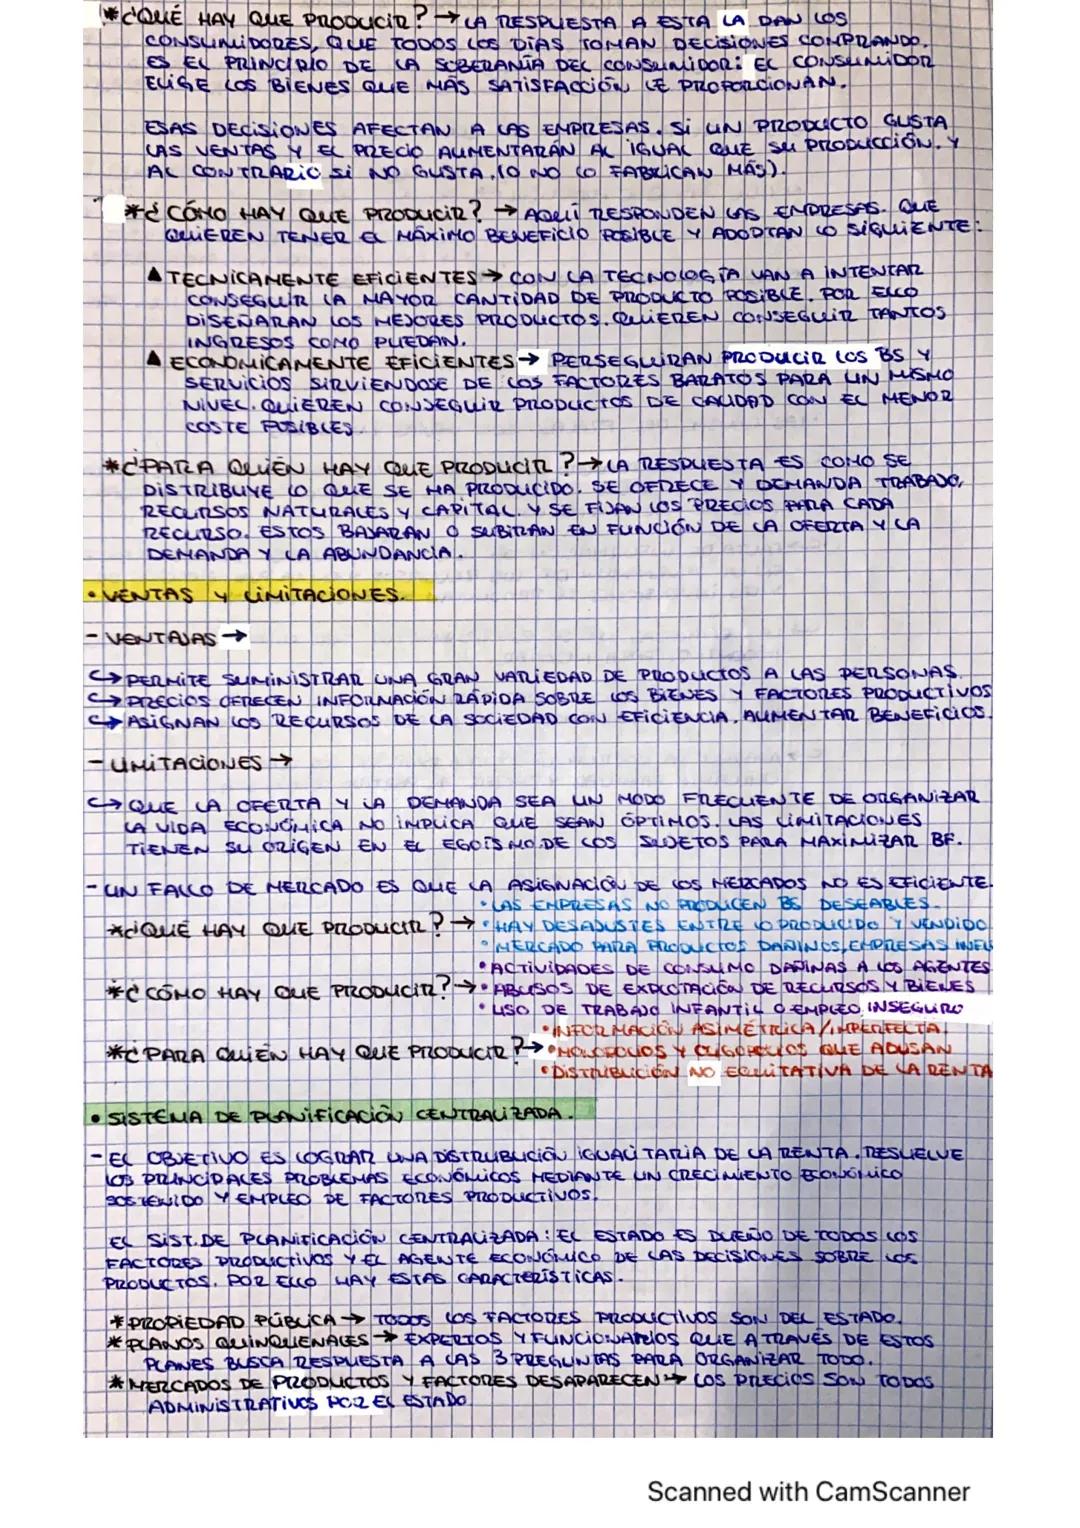 *¿QUÉ HAY QUE PRODUCIR? → LA RESPUESTA A ESTA LA DAN LOS
CONSUMIDORES, QUE TODOS LOS DÍAS TOMAN DECISIONES COMPRANDO.
ES EL PRINCIPIO DE LA SOBERANÍA DEL CONSUMIDOR: EL CONSUMIDOR
ELIGE LOS BIENES QUE MÁS SATISFACCIÓN LE PROPORCIONAN.
ESAS DECISIONES AFECTAN A LAS EMPRESAS. SI UN PRODUCTO GUSTA
LAS VENTAS Y EL PRECIO AUMENTARÁN AL IGUAL QUE SU PRODUCCIÓN. Y
AL CONTRARIO SI NO GUSTA. (O NO LO FABRICAN MÁS).
*¿CÓMO HAY QUE PRODUCIR? → AQUÍ RESPONDEN LAS EMPRESAS. QUE
QUIEREN TENER EL MÁXIMO BENEFICIO POSIBLE Y ADOPTAN LO SIGUIENTE:
▲ TECNICAMENTE EFICIENTES → CON LA TECNOLOGÍA VAN A INTENTAR
CONSEGUIR LA MAYOR CANTIDAD DE PRODUCTO POSIBLE. POR ELLO
DISEÑARAN LOS MEJORES PRODUCTOS. QUIEREN CONSEGUIR TANTOS
INGRESOS COMO PUEDAN.
▲ ECONOMICAMENTE EFICIENTES → PERSEGUIRAN PRODUCIR LOS BS Y
SERVICIOS SIRVIENDOSE DE LOS FACTORES BARATOS PARA UN MISMO
NIVEL. QUIEREN CONSEGUIR PRODUCTOS DE CALIDAD CON EL MENOR
COSTE POSIBLES.
*¿PARA QUIÉN HAY QUE PRODUCIR? → LA RESPUESTA ES COMO SE
DISTRIBUYE LO QUE SE HA PRODUCIDO. SE OFRECE Y DEMANDA TRABAJO,
RECURSOS NATURALES Y CAPITAL. Y SE FIJAN LOS PRECIOS PARA CADA
RECURSO. ESTOS BAJARAN O SUBIRAN EN FUNCIÓN DE LA OFERTA Y LA
DEMANDA Y LA ABUNDANCIA.
• VENTAS Y LIMITACIONES.
- VENTAJAS →
↳ PERMITE SUMINISTRAR UNA GRAN VARIEDAD DE PRODUCTOS A LAS PERSONAS.
↳ PRECIOS OFRECEN INFORMACIÓN RÁPIDA SOBRE LOS BIENES Y FACTORES PRODUCTIVOS
↳ ASIGNAN LOS RECURSOS DE LA SOCIEDAD CON EFICIENCIA. AUMENTAR BENEFICIOS.
- LIMITACIONES →
↳ QUE LA OFERTA Y LA DEMANDA SEA UN MODO FRECUENTE DE ORGANIZAR
LA VIDA ECONÓMICA NO IMPLICA QUE SEAN ÓPTIMOS. LAS LIMITACIONES
TIENEN SU ORIGEN EN EL EGOÍSMO DE LOS SUJETOS PARA MAXIMIZAR BF.
- UN FALLO DE MERCADO ES QUE LA ASIGNACIÓN DE LOS MERCADOS NO ES EFICIENTE.
• LAS EMPRESAS NO PRODUCEN BS DESEABLES.
*¿QUÉ HAY QUE PRODUCIR? → • HAY DESAJUSTES ENTRE LO PRODUCIDO Y VENDIDO
• MERCADO PARA PRODUCTOS DAÑINOS, EMPRESAS INEF
• ACTIVIDADES DE CONSUMO DAÑINAS A LOS AGENTES
*¿CÓMO HAY QUE PRODUCIR? → • ABUSOS DE EXPLOTACIÓN DE RECURSOS Y BIENES
• USO DE TRABAJO INFANTIL O EMPLEO INSEGURO
• INFORMACIÓN ASIMÉTRICA/IMPERFECTA.
*¿PARA QUIÉN HAY QUE PRODUCIR? → • MONOPOLIOS Y OLIGOPOLIOS QUE ABUSAN
• DISTRIBUCIÓN NO EQUITATIVA DE LA RENTA
• SISTEMA DE PLANIFICACIÓN CENTRALIZADA.
- EL OBJETIVO ES LOGRAR UNA DISTRUBUCIÓN IGUALITARIA DE LA RENTA. RESUELVE
LOS PRINCIPALES PROBLEMAS ECONÓMICOS MEDIANTE UN CRECIMIENTO ECONÓMICO
SOSTENIDO Y EMPLEO DE FACTORES PRODUCTIVOS.
EL SIST. DE PLANIFICACIÓN CENTRALIZADA: EL ESTADO ES DUEÑO DE TODOS LOS
FACTORES PRODUCTIVOS Y EL AGENTE ECONÓMICO DE LAS DECISIONES SOBRE LOS
PRODUCTOS. POR ELLO HAY ESTAS CARACTERÍSTICAS.
* PROPIEDAD PÚBLICA → TODOS LOS FACTORES PRODUCTIVOS SON DEL ESTADO.
* PLANOS QUINQUENALES → EXPERTOS Y FUNCIONARIOS QUE A TRAVÉS DE ESTOS
PLANES BUSCA RESPUESTA A LAS 3 PREGUNTAS PARA ORGANIZAR TODO.
* MERCADOS DE PRODUCTOS Y FACTORES DESAPARECEN → LOS PRECIOS SON TODOS
ADMINISTRATIVOS POR EL ESTADO
Scanned with CamScanner